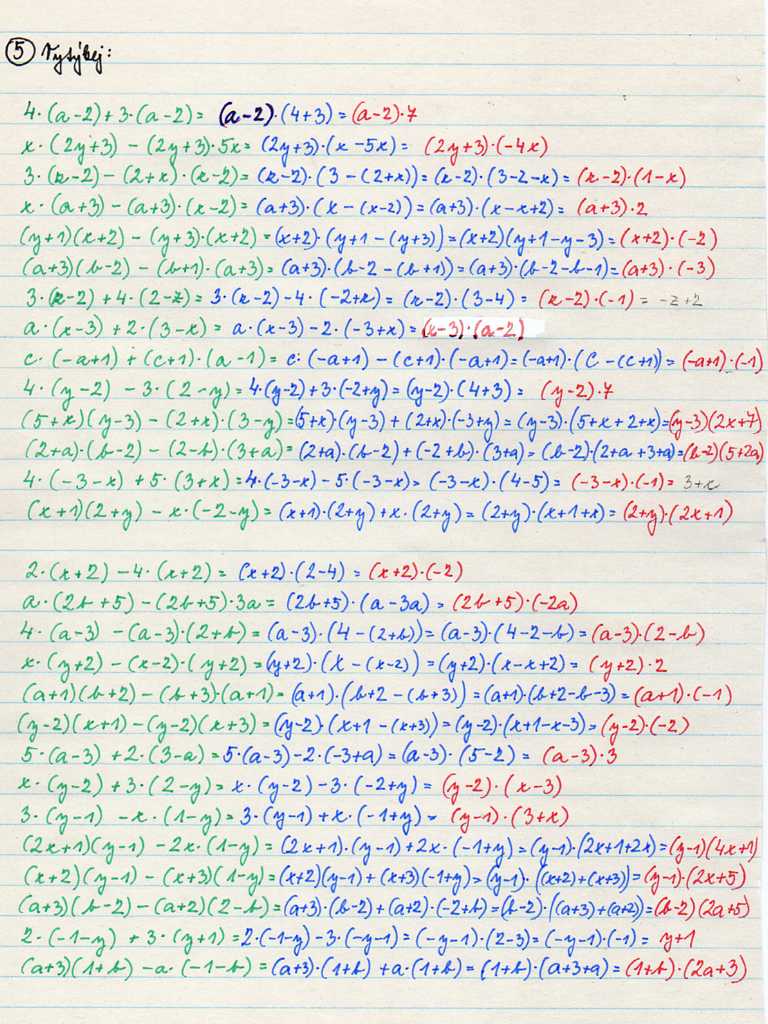 5 Vytýkej:
4·(a-2)+3·(a-2)= (a-2)·(4+3)=(a-2)·7
x·(2y+3)-(2y+3)·5x=(2y+3)·(x-5x)= (2y+3)·(-4x)
3·(z-2)-(2+x)·(z-2)=(z-2)·(3-(2+x))=(z-2)·(3-2-x)=(z-2)·(1-x)
x·(a+3)-(a+3)·(x-2)=(a+3)·(x-(x-2))=(a+3)·(x-x+2)= (a+3)·2
(y+1)(x+2)-(y+3)·(x+2)=(x+2)·(y+1-(y+3))=(x+2)(y+1-y-3)=(x+2)·(-2)
(a+3)(b-2)-(b+1)·(a+3)=(a+3)·(b-2-(b+1))=(a+3)·(b-2-b-1)=(a+3)·(-3)
3·(z-2)+4·(2-z)=3·(z-2)-4·(-2+z)=(z-2)·(3-4)=(z-2)·(-1)=-z+2
a·(x-3)+2·(3-x)=a·(x-3)-2·(-3+x)=(x-3)·(a-2)
c·(-a+1)+(c+1)·(a-1)=c·(-a+1)-(c+1)·(-a+1)=(-a+1)·(c-(c+1))=(-a+1)·(-1)
4·(y-2)-3·(2-y)=4·(y-2)+3·(-2+y)=(y-2)·(4+3)= (y-2)·7
(5+x)(y-3)-(2+x)·(3-y)=(5+x)·(y-3)+(2+x)·(-3+y)=(y-3)·(5+x+2+x)=(y-3)(2x+7)
(2+a)·(b-2)-(2-b)·(3+a)=(2+a)·(b-2)+(-2+b)·(3+a)=(b-2)·(2+a+3+a)=(b-2)(5+2a)
4·(-3-x)+5·(3+x)=4·(-3-x)-5·(-3-x)=(-3-x)·(4-5)=(-3-x)·(-1)=3+x
(x+1)(2+y)-x·(-2-y)=(x+1)·(2+y)+x·(2+y)=(2+y)·(x+1+x)=(2+y)·(2x+1)
2·(x+2)-4·(x+2)=(x+2)·(2-4)=(x+2)·(-2)
a·(2b+5)-(2b+5)·3a=(2b+5)·(a-3a)=(2b+5)·(-2a)
4·(a-3)-(a-3)·(2+b)=(a-3)·(4-(2+b))=(a-3)·(4-2-b)=(a-3)·(2-b)
x·(y+2)-(x-2)·(y+2)=(y+2)·(x-(x-2))=(y+2)·(x-x+2)= (y+2)·2
(a+1)(b+2)-(b+3)·(a+1)=(a+1)·(b+2-(b+3))=(a+1)·(b+2-b-3)=(a+1)·(-1)
(y-2)(x+1)-(y-2)(x+3)=(y-2)·(x+1-(x+3))=(y-2)·(x+1-x-3)=(y-2)·(-2)
5·(a-3)+2·(3-a)=5·(a-3)-2·(-3+a)=(a-3)·(5-2)= (a-3)·3
x·(y-2)+3·(2-y)=x·(y-2)-3·(-2+y)= (y-2)·(x-3)
3·(y-1)-x·(1-y)=3·(y-1)+x·(-1+y)= (y-1)·(3+x)
(2x+1)(y-1)-2x·(1-y)=(2x+1)·(y-1)+2x·(-1+y)=(y-1)·(2x+1+2x)=(y-1)(4x+1)
(x+2)(y-1)-(x+3)(1-y)=(x+2)(y-1)+(x+3)(-1+y)=(y-1)·((x+2)+(x+3))=(y-1)·(2x+5)
(a+3)(b-2)-(a+2)(2-b)=(a+3)·(b-2)+(a+2)·(-2+b)=(b-2)·((a+3)+(a+2))=(b-2)(2a+5)
2·(-1-y)+3·(y+1)=2·(-1-y)-3·(-y-1)=(-y-1)·(2-3)=(-y-1)·(-1)= y+1
(a+3)(1+b)-a·(-1-b)=(a+3)·(1+b)+a·(1+b)=(1+b)·(a+3+a)=(1+b)·(2a+3)